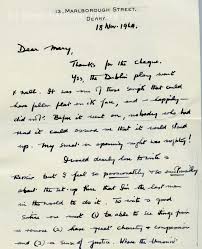 13, MARLBOROUGH STREET,
DERRY.
18 Nov. 1960.
Dear Mary,
Thanks for the
Yes, the Dublin play went
well. It was one of those scripts that could
have fallen flat on its face, and – happily –
did not. Before it went on, nobody who had
read it could assure us that it could stand
up. My sweat on opening night was mighty!
I would dearly love to write a
but I feel so passionately & so
about the set-up here that I'm the last man
in the world to do it. To write a good
one must (1) be able to see things from
a remove (2) have great charity & compassion
and (3) a sense of justice. Where the